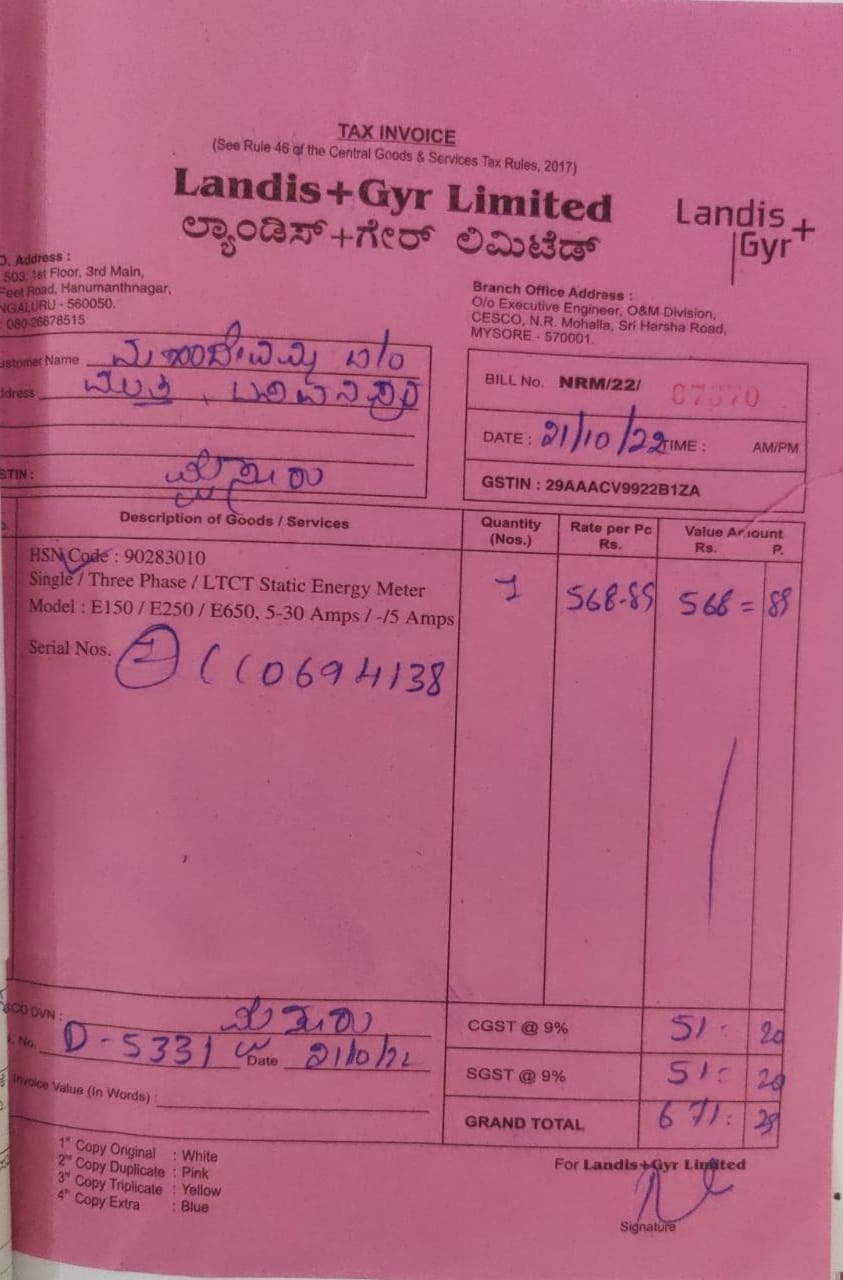 TAX INVOICE
(See Rule 46 of the Central Goods & Services Tax Rules, 2017)
Landis+Gyr Limited
ಲ್ಯಾಂಡಿಸ್+ಗೇರ್ ಲಿಮಿಟೆಡ್
Landis+
Gyr+
O. Address :
503, 1st Floor, 3rd Main,
Feet Road, Hanumanthnagar,
NGALURU - 560050.
: 080-26678515
Branch Office Address :
O/o Executive Engineer, O&M Division,
CESCO, N.R. Mohalla, Sri Harsha Road,
MYSORE - 570001.
ustomer Name
ddress
STIN :
BILL No. NRM/22/ 07370
DATE : 21/10/22 TIME : AM/PM
GSTIN : 29AAACV9922B1ZA
Description of Goods / Services Quantity (Nos.) Rate per Pc Rs. Value Amount Rs. P.
HSN Code : 90283010
Single / Three Phase / LTCT Static Energy Meter 1 568-89 568 = 89
Model : E150 / E250 / E650, 5-30 Amps / -/5 Amps
Serial Nos. 1 110694138
DVN :
No. D-5331 Date 21/10/22
Invoice Value (In Words) :
CGST @ 9% 51: 20
SGST @ 9% 51: 20
GRAND TOTAL 671: 29
1st Copy Original : White
2nd Copy Duplicate : Pink
3rd Copy Triplicate : Yellow
4th Copy Extra : Blue
For Landis+Gyr Limited
Signature